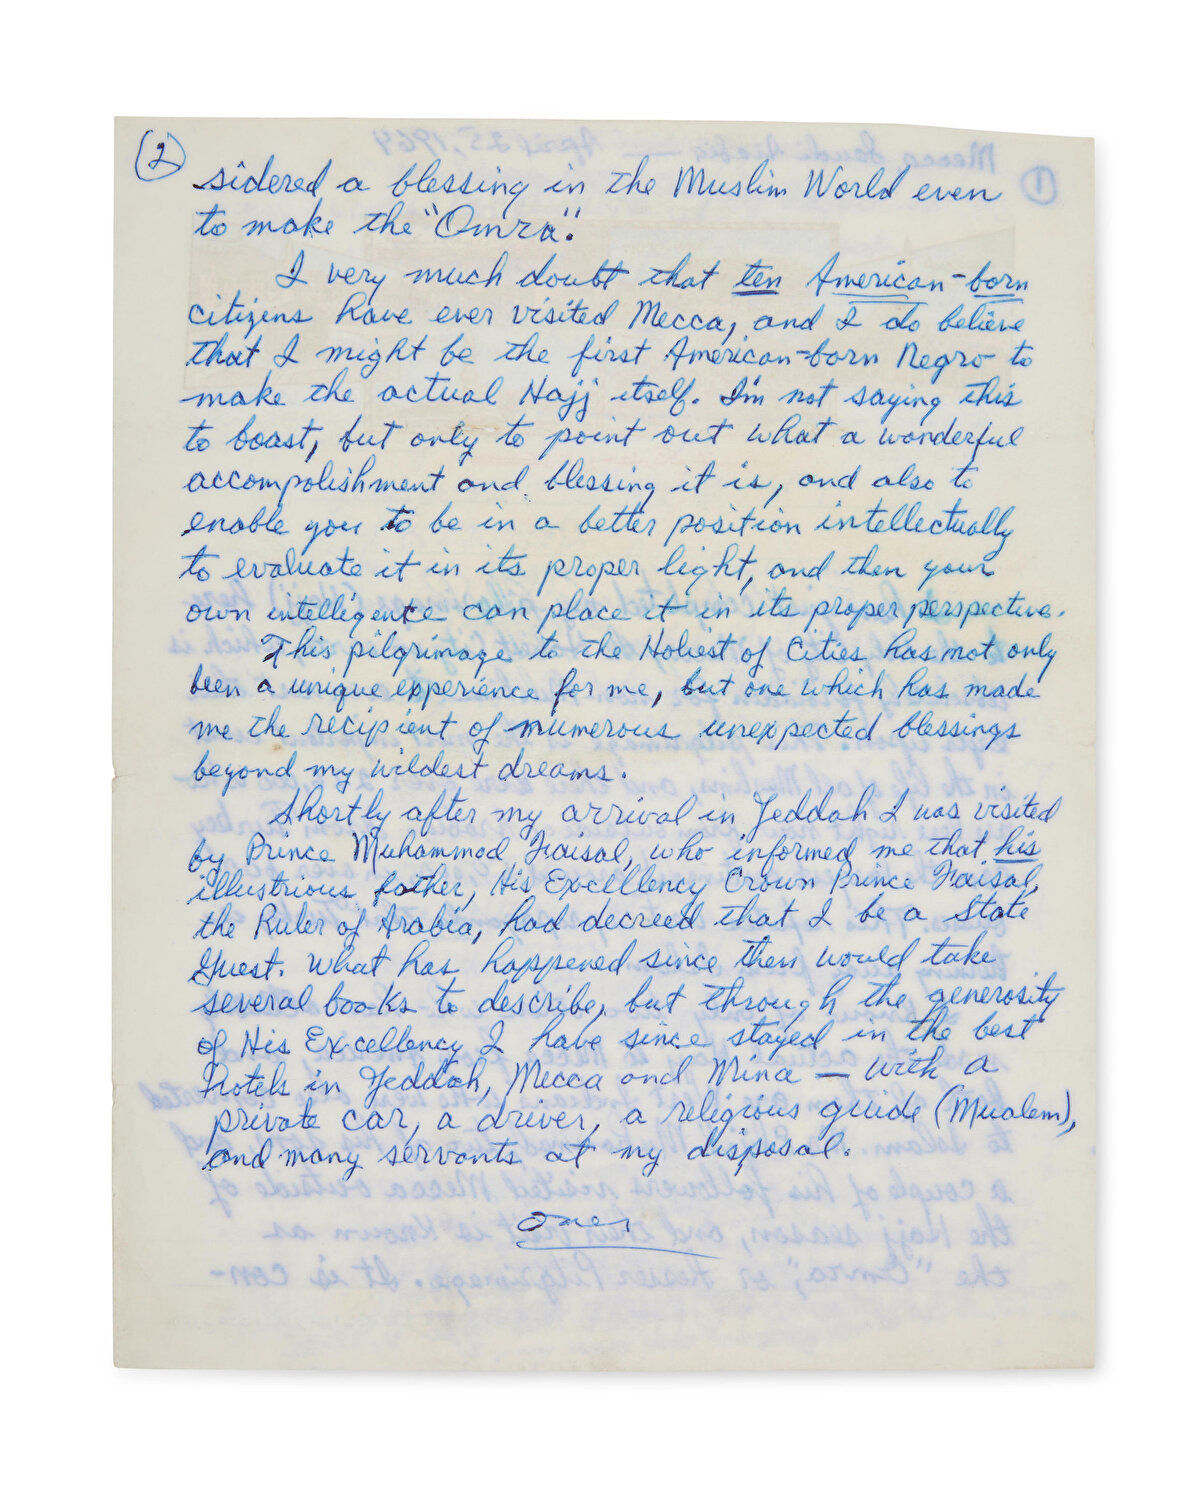 (2)
sidered a blessing in the Muslim World even
to make the "Omra".
I very much doubt that ten American-born
citizens have ever visited Mecca, and I do believe
that I might be the first American-born Negro to
make the actual Hajj itself. I'm not saying this
to boast, but only to point out what a wonderful
accompolishment and blessing it is, and also to
enable you to be in a better position intellectually
to evaluate it in its proper light, and then your
own intelligence can place it in its proper perspective.
This pilgrimage to the Holiest of Cities has not only
been a unique experience for me, but one which has made
me the recipient of numerous unexpected blessings
beyond my wildest dreams.
Shortly after my arrival in Jeddah I was visited
by Prince Muhammad Faisal, who informed me that his
illustrious father, His Excellency Crown Prince Faisal,
the Ruler of Arabia, had decreed that I be a State
Guest. What has happened since then would take
several books to describe, but through the generosity
of His Excellency I have since stayed in the best
hotels in Jeddah, Mecca and Mina — with a
private car, a driver, a religious guide (Mualem),
and many servants at my disposal.
over
(1) Mecca, Saudi Arabia — April 25, 1964
to Islam.
a couple of his followers visited Mecca outside of
the Hajj season, and their visit is known as
the "Omra", or Lesser Pilgrimage. It is con-